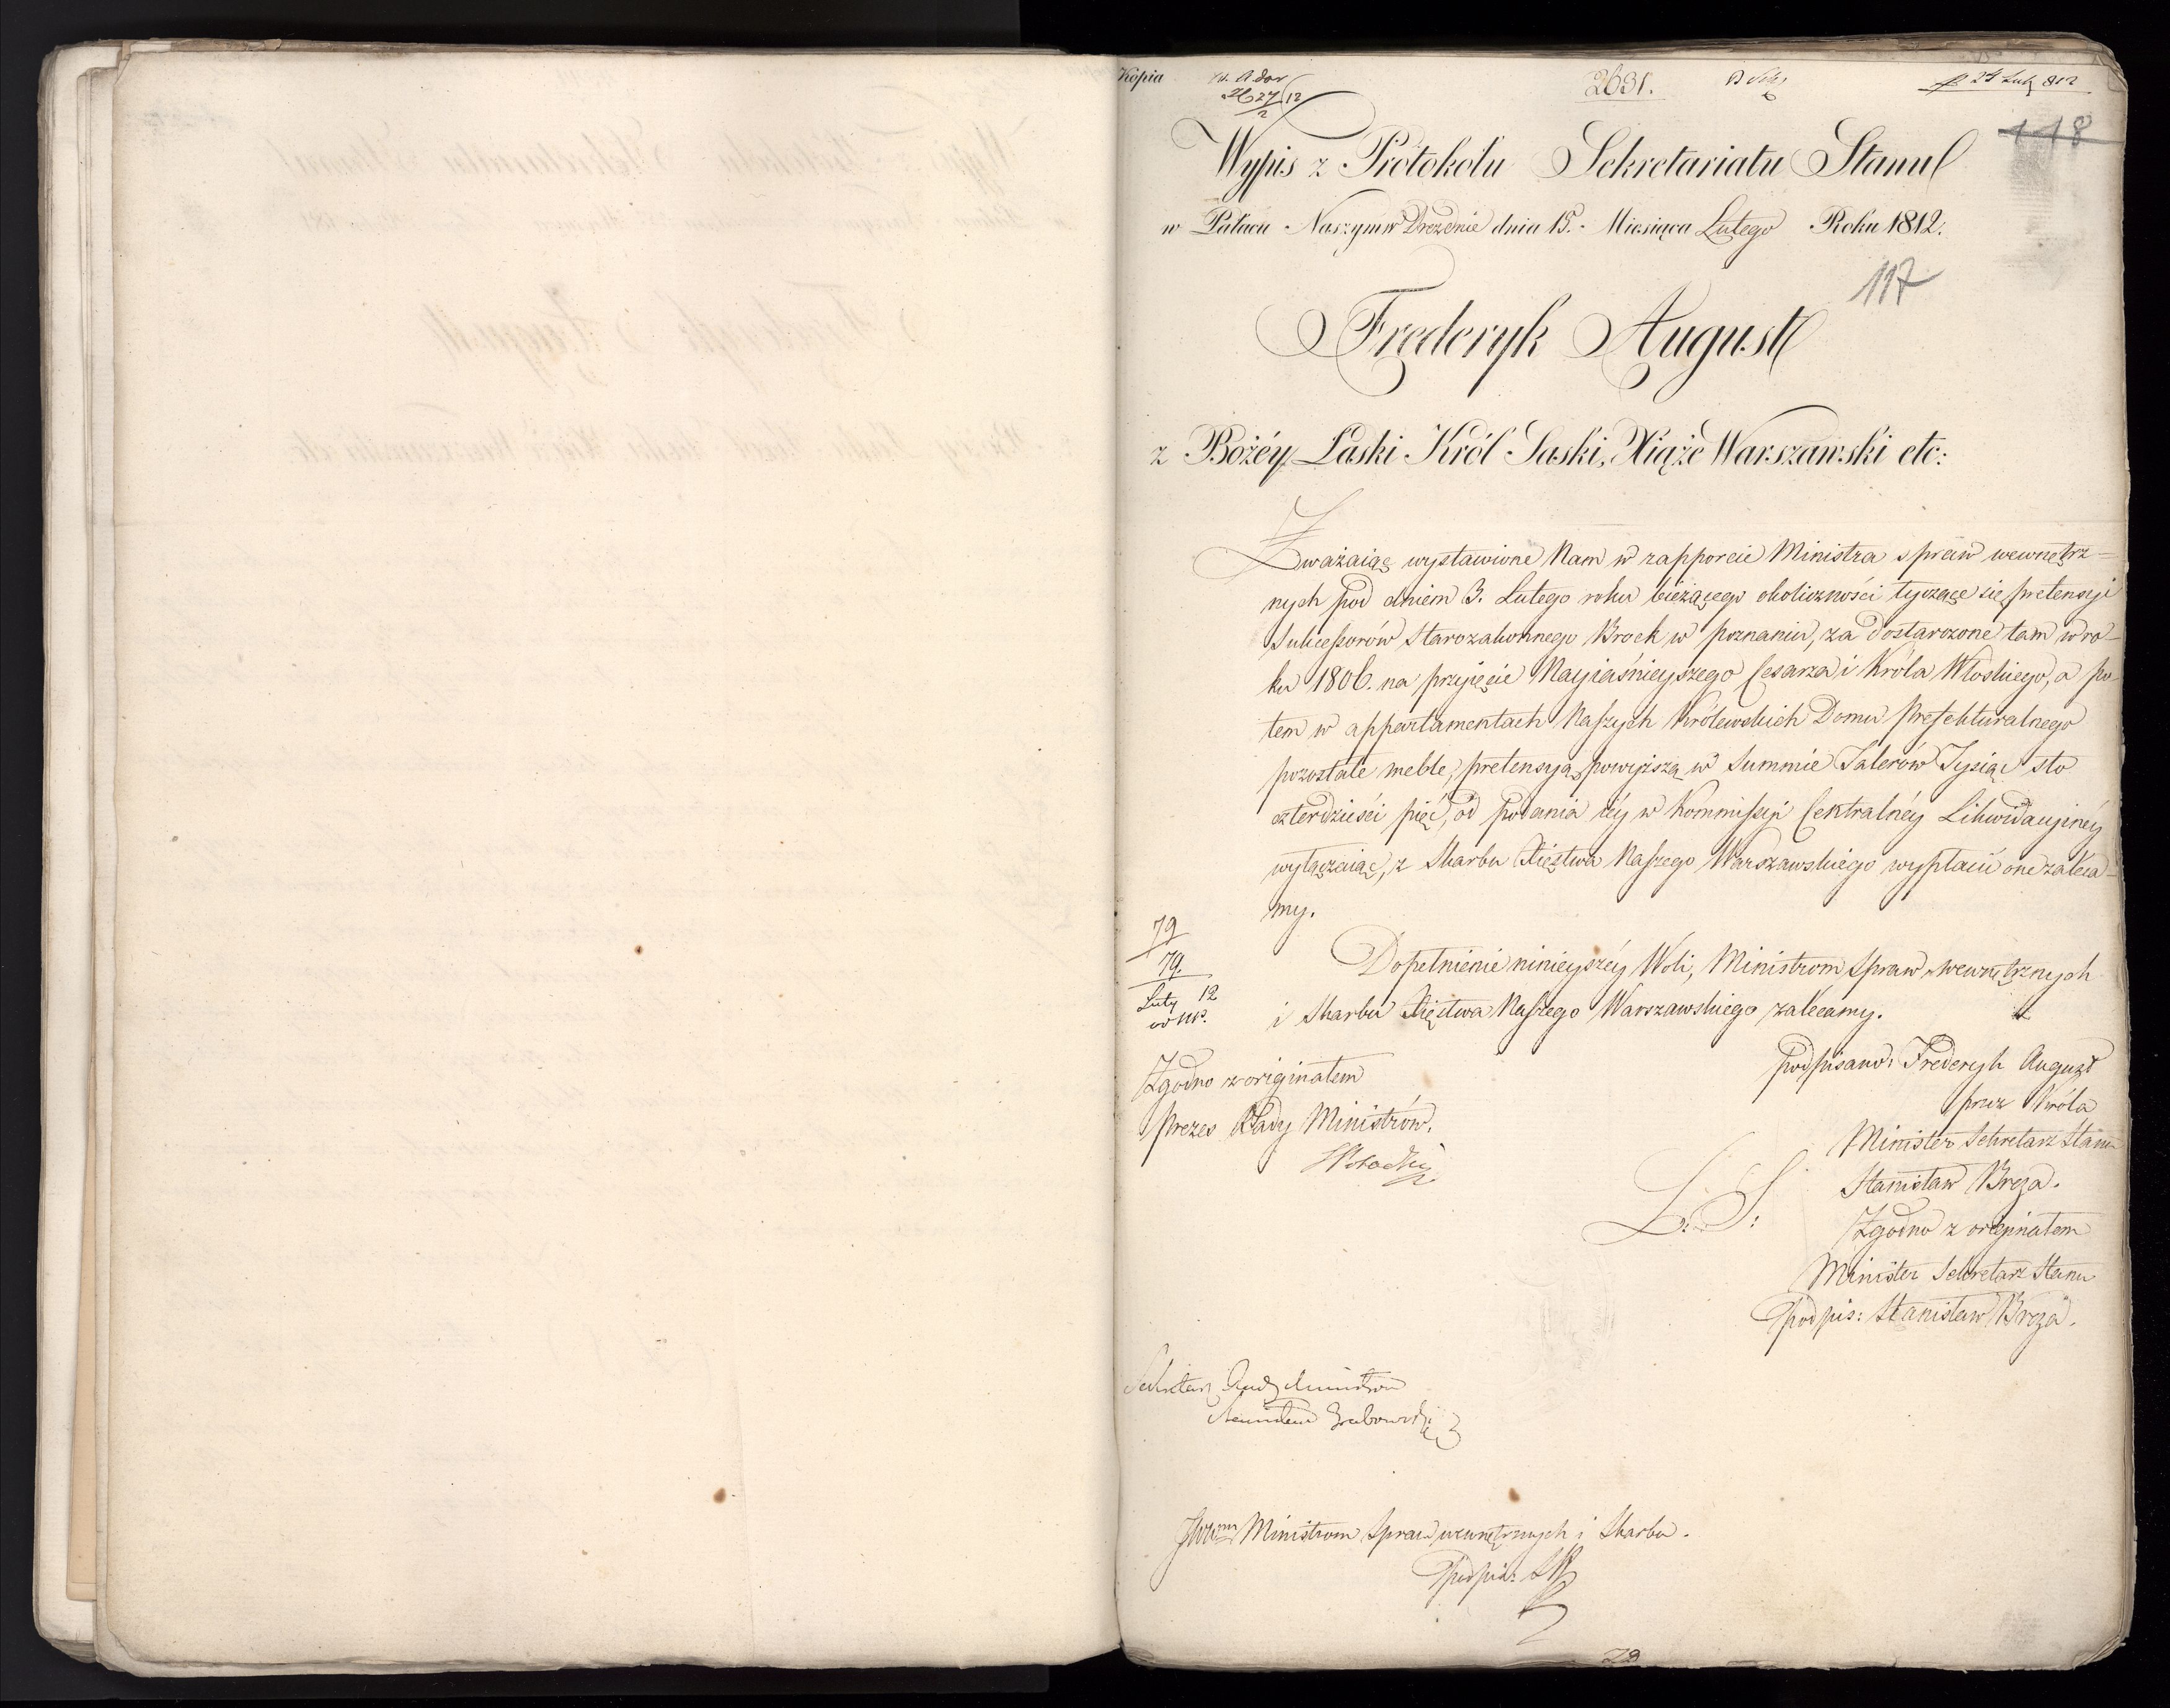 Kopia
2631.
118
Wypis z Protokołu Sekretariatu Stanu
w Pałacu Naszym w Dreznie dnia 15. Miesiąca Lutego Roku 1812.
117
Frederyk August
z Bożéy Łaski Król Saski, Xiąże Warszawski etc:
Zważaiąc wystawione Nam w rapporcie Ministra spraw wewnętrz=
nych pod dniem 3. Lutego roku bieżącego okoliczności tyczące się pretensyi
Sukcessorów Starozakonnego Brock w Poznaniu, za dostarczone tam w ro-
ku 1806. na przyięcie Nayiaśnieyszego Cesarza i Króla Włoskiego, a po-
tem w appartamentach Naszych Królewskich Domu Prefekturalnego
pozostałe meble, pretensyą powyższą w Summie Talerów Tysiąc sto
czterdzieści pięć, od podania iéy w Kommissyi Centralnéy Likwidacyinéy
wyłączaiąc, z Skarbu Xięstwa Naszego Warszawskiego wypłacić one zaleca-
my.
79
79.
Luty 12
Dopełnienie ninieyszéy Woli, Ministrom Spraw wewnętrznych
i Skarbu Xięstwa Naszego Warszawskiego zalecamy.
podpisano: Frederyk August
przez Króla
Minister Sekretarz Stanu
Stanisław Breza.
Zgodno z originałem
Prezes Rady Ministrów.
L: S:
Zgodno z originałem
Minister Sekretarz Stanu
Podpis: Stanisław Breza.
Sekretarz Rady Ministrów
Stanisław Grabowski
Ministrom Spraw wewnętrznych i Skarbu.